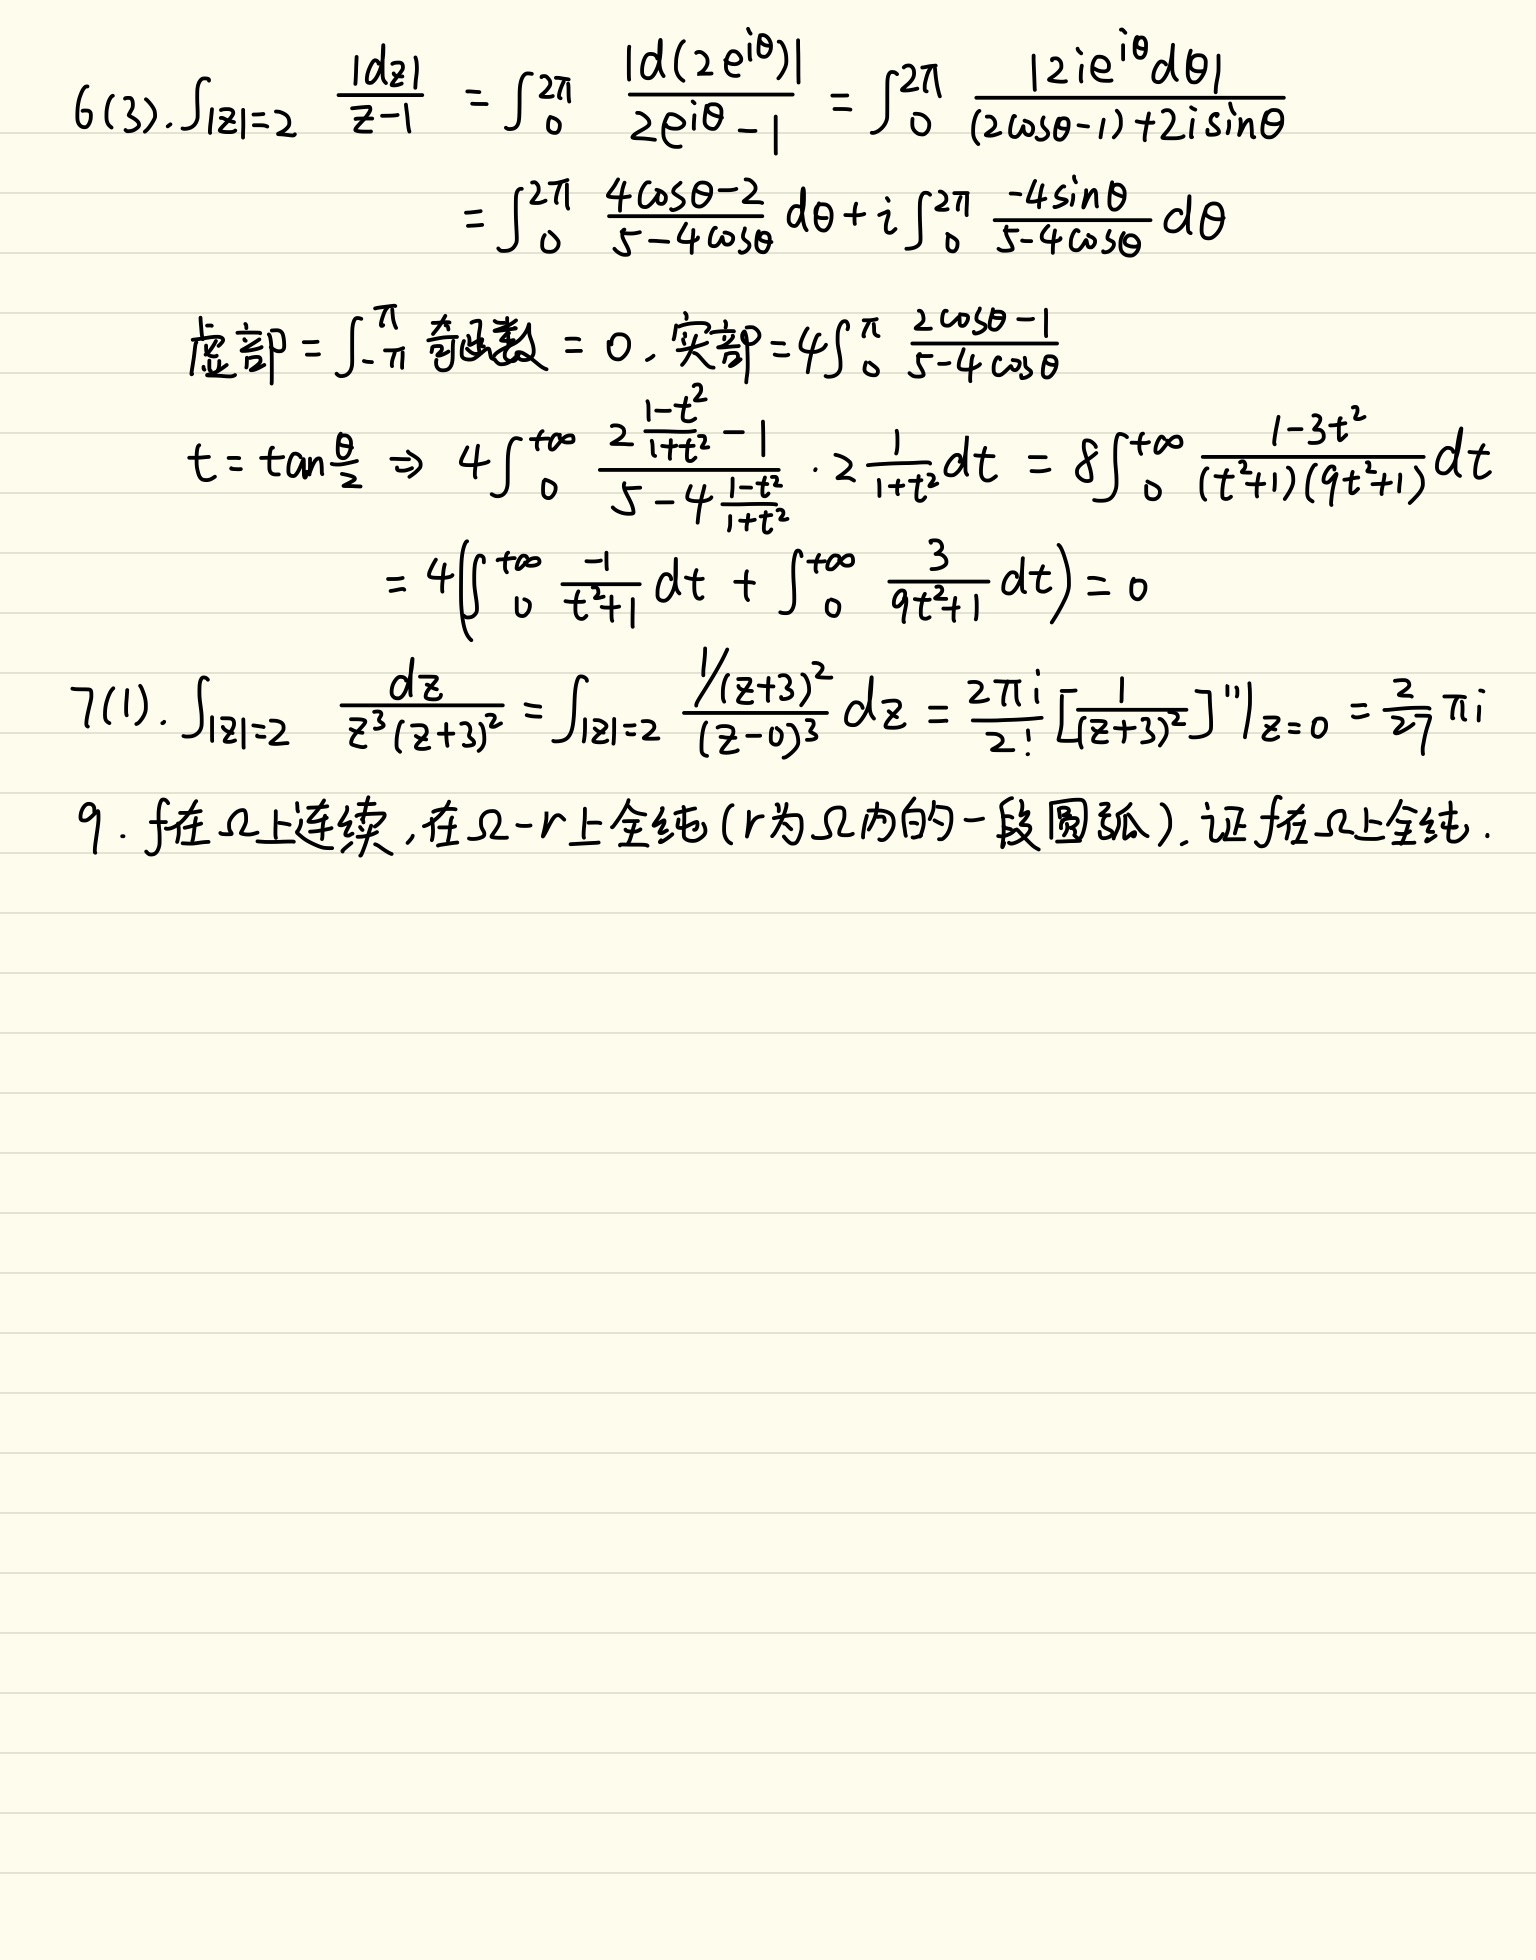 6(3). ∫_{|z|=2} |dz|/(z-1) = ∫_0^{2π} |d(2e^{iθ})|/(2e^{iθ}-1) = ∫_0^{2π} |2ie^{iθ}dθ|/((2cosθ-1)+2isinθ)
= ∫_0^{2π} (4cosθ-2)/(5-4cosθ) dθ + i∫_0^{2π} (-4sinθ)/(5-4cosθ) dθ
虚部 = ∫_{-π}^{π} 奇函数 = 0. 实部 = 4∫_0^π (2cosθ-1)/(5-4cosθ)
t = tan(θ/2) ⇒ 4∫_0^{+∞} (2(1-t²)/(1+t²) - 1)/(5-4(1-t²)/(1+t²)) · 2 1/(1+t²) dt = 8∫_0^{+∞} (1-3t²)/((t²+1)(9t²+1)) dt
= 4(∫_0^{+∞} (-1)/(t²+1) dt + ∫_0^{+∞} 3/(9t²+1) dt) = 0
7(1). ∫_{|z|=2} dz/(z³(z+3)²) = ∫_{|z|=2} (1/(z+3)²)/(z-0)³ dz = (2πi/2!) [1/(z+3)²]''|_{z=0} = (2/27)πi
9. f在Ω上连续,在Ω-r上全纯(r为Ω内的一段圆弧).证f在Ω上全纯.